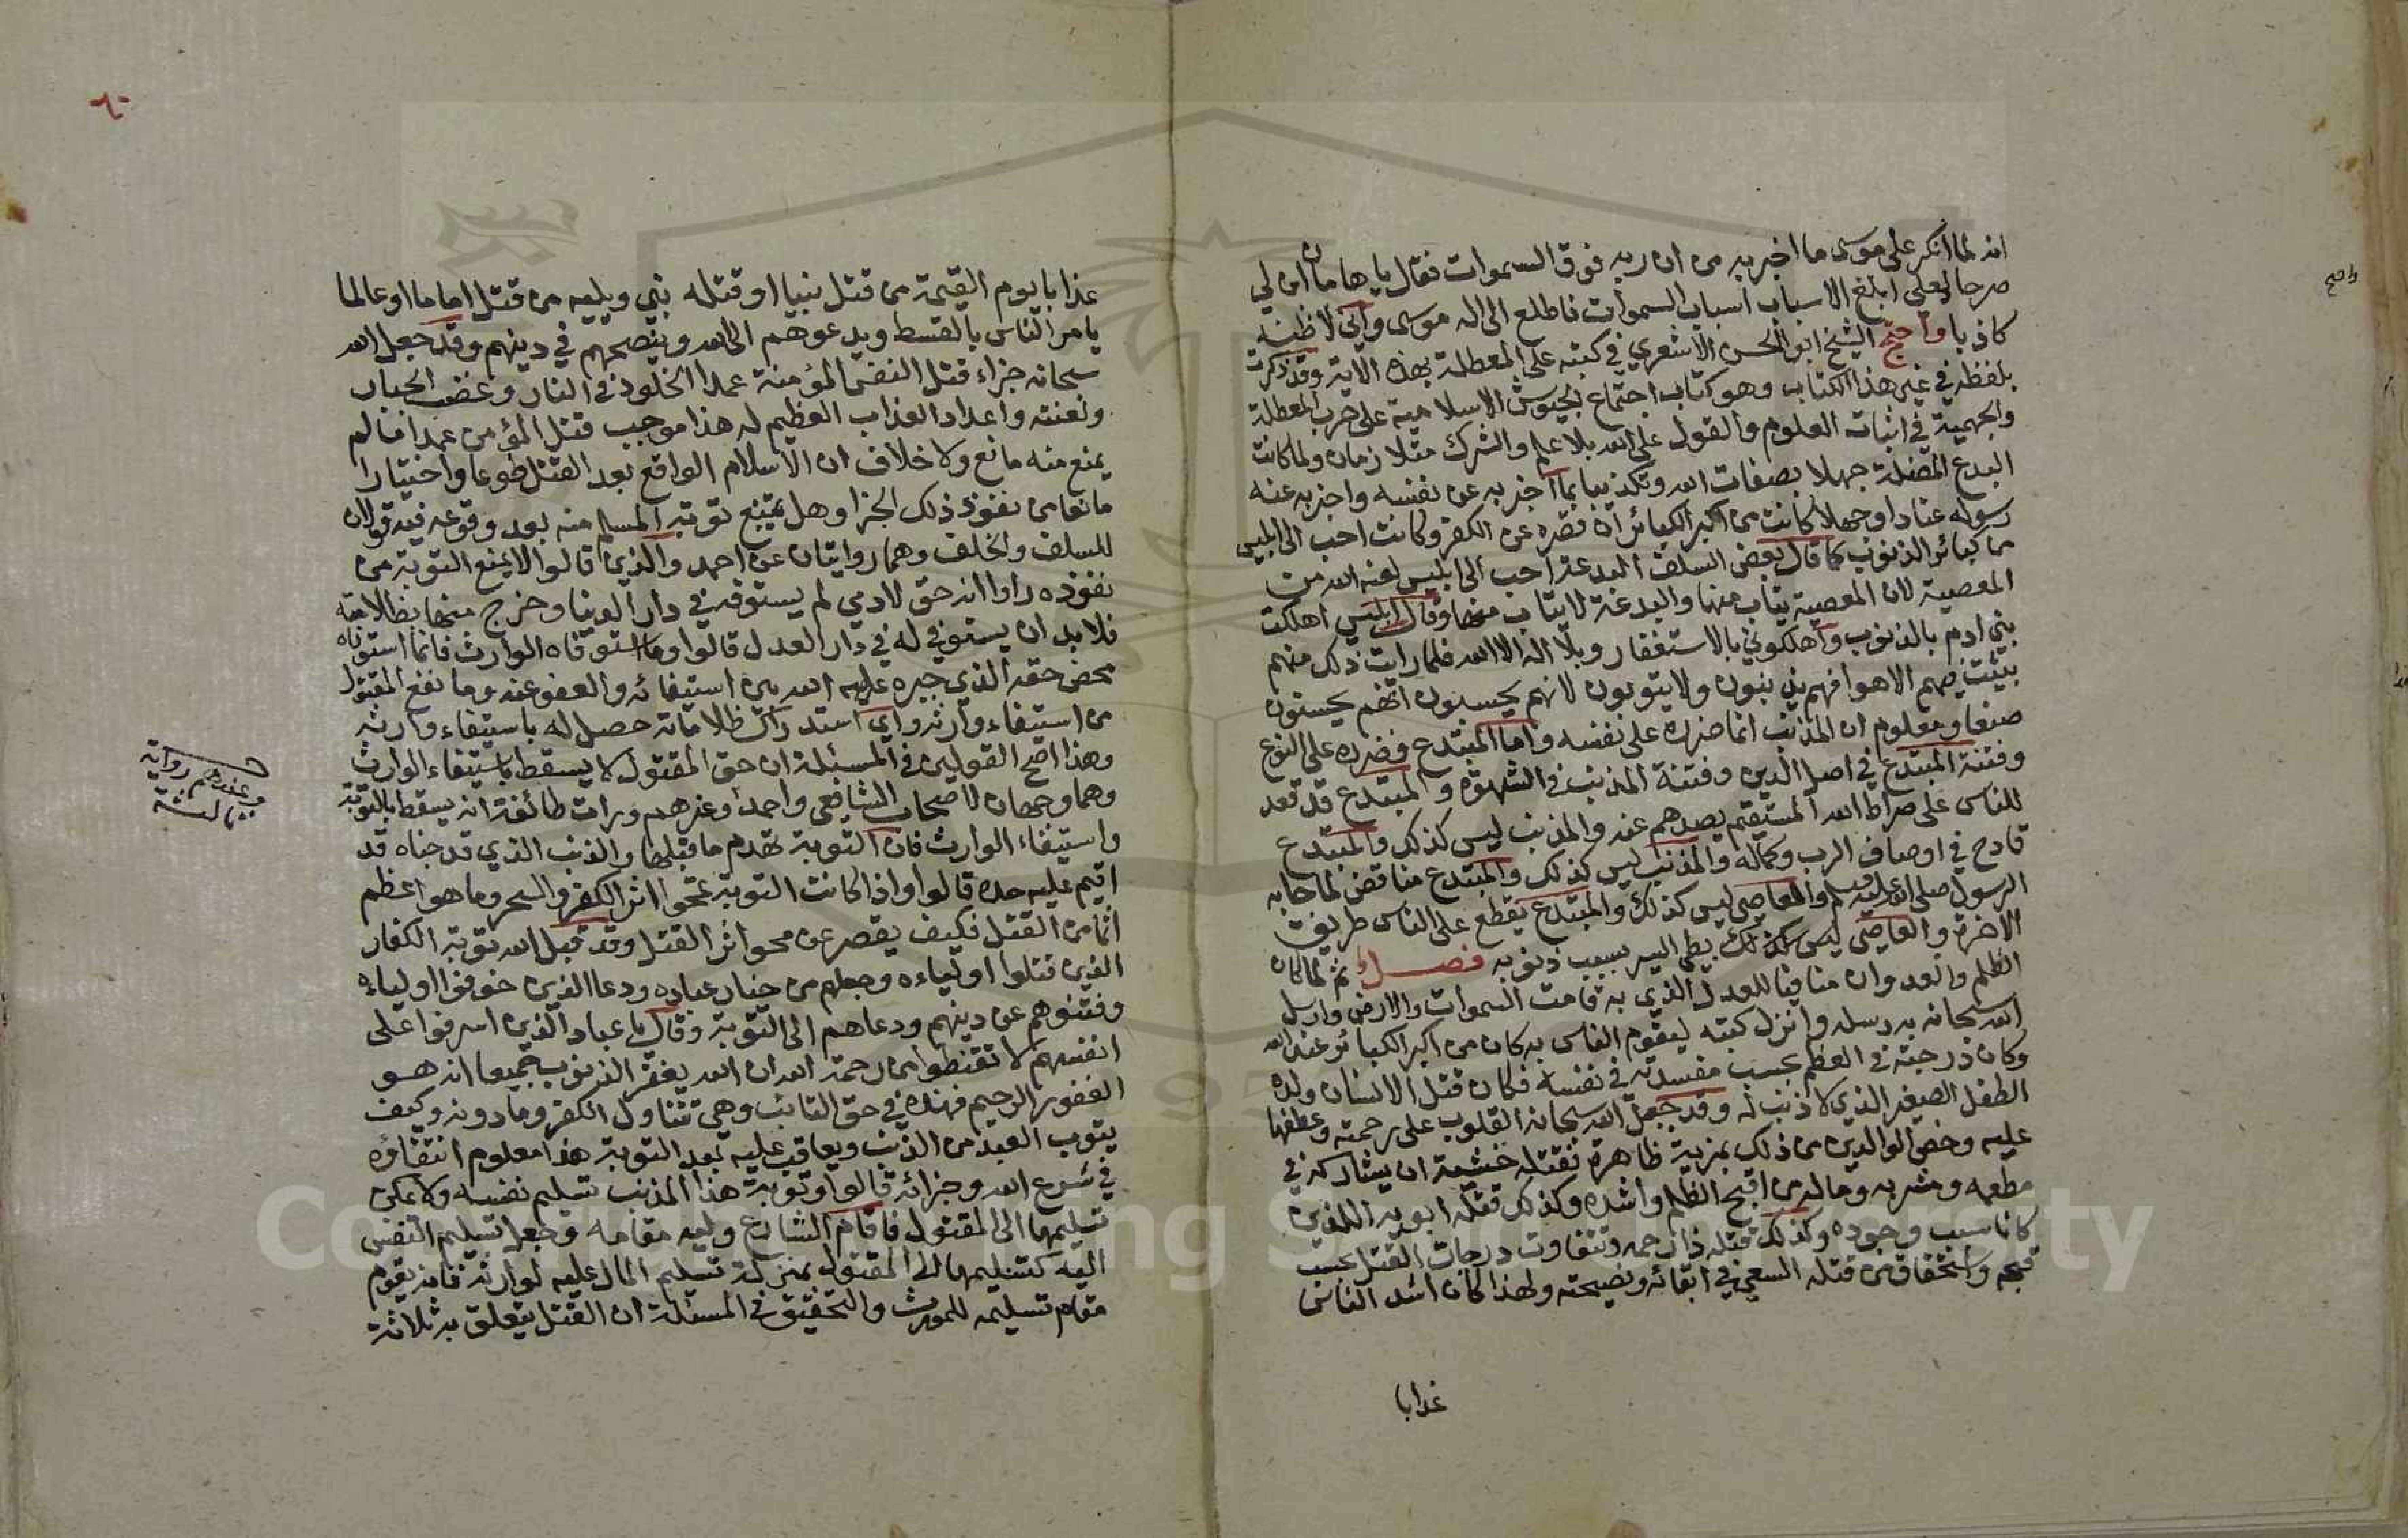 انه لما انكر على موسى ما اخبر به من ان ربه فوق السموات فقال يا هامان ابن لي
صرحا لعلي ابلغ الاسباب اسباب السموات فاطلع الى اله موسى واني لاظنه
كاذبا واحتج الشيخ ابو الحسن الاشعري في كتبه على المعطلة بهذه الاية وقد ذكرت
بلفظه في غير هذا الكتاب وهو كتاب اجتماع الجيوش الاسلامية على حرب المعطلة
والجهمية في اثبات العلوم والقول على الله بلا علم والشرك متلازمان ولما كانت
البدع المضلة جهلا بصفات الله وتكذيبا بما اخبر به عن نفسه واخبر به عنه
رسوله عنادا وجهلا كانت من اكبر الكبائر ان قصره عن الكفر وكانت احب الى ابليس
من كبائر الذنوب كما قال بعض السلف البدعة احب الى ابليس لعنه الله من
المعصية لان المعصية يتاب منها والبدعة لا يتاب منها وقال ابليس اهلكت
بني ادم بالذنوب واهلكوني بالاستغفار وبلا اله الا الله فلما رايت ذلك منهم
بثثت فيهم الاهوا فهم يذنبون ولا يتوبون لانهم يحسبون انهم يحسنون
صنعا ومعلوم ان المذنب انما ضرره على نفسه واما المبتدع فضرره على النوع
وفتنة المبتدع في اصل الدين وفتنة المذنب في الشهوة والمبتدع قد قعد
للناس على صراط الله المستقيم يصدهم عنه والمذنب ليس كذلك والمبتدع
قادح في اوصاف الرب وكماله والمذنب ليس كذلك والمبتدع مناقض لما جا به
الرسول صلى الله عليه وسلم والعاصي ليس كذلك والمبتدع يقطع على الناس طريق
الاخرة والعاصي ليس كذلك بطي السير بسبب ذنوبه فصل ثم لما كان
الظلم والعدوان منافيا للعدل الذي به قامت السموات والارض وارسل
الله سبحانه به رسله وانزل كتبه ليقوم الناس به كان من اكبر الكبائر عند الله
وكان درجته في العظم بحسب مفسدته في نفسه فكان قتل الانسان ولده
الطفل الصغير الذي لا ذنب له وقد جعل الله سبحانه القلوب على رحمته وعطفها
عليه وخص الوالدين من ذلك بمزية ظاهرة فقتله خشية ان يشاركه في
مطعمه ومشربه وماله من اقبح الظلم واشده وكذلك قتله ابويه اللذين
كانا سبب وجوده وكذلك قتله ذا رحمه وتتفاوت درجات القتل بحسب
قبحه واستحقاق من قتله السعي في ابقائه ونصيحته ولهذا كان اشد الناس
عذابا
واضح
٦٠
عذابا يوم القيمة من قتل نبيا او قتله نبي ويليه من قتل اماما او عالما
يامر الناس بالقسط ويدعوهم الى الله وينصحهم في دينهم وقد جعل الله
سبحانه جزاء قتل النفس المؤمنة عمدا الخلود في النار وغضب الجبار
ولعنته واعداد العذاب العظيم له هذا موجب قتل المؤمن عمدا مالم
يمنع منه مانع ولا خلاف ان الاسلام الواقع بعد القتل طوعا واختيارا
مانع من نفوذ ذلك الجزا وهل تمنع توبة المسلم منه بعد وقوعه فيه قولان
للسلف والخلف وهما روايتان عن احمد والذين قالوا لا تمنع التوبة من
نفوذه راوا انه حق لادمي لم يستوفه في دار الدنيا وخرج منها بظلامته
فلا بد ان يستوفي له في دار العدل قالوا وما استوفاه الوارث فانما استوفاه
محض حقه الذي خيره عليه الله بين استيفائه والعفو عنه وما نفع المقتول
من استيفاء وارثه واي استدراك ظلامته حصل له باستيفاء وارثه
وهذا اصح القولين في المسئلة ان حق المقتول لا يسقط باستيفاء الوارث
وهما وجهان لاصحاب الشافعي واحمد وغيرهم ورات طائفة انه يسقط بالتوبة
وعندهم رواية
ثالثة
واستيفاء الوارث فان التوبة تهدم ما قبلها والذنب الذي قد جناه قد
اقيم عليه حده قالوا واذا كانت التوبة تمحوا اثر الكفر والسحر وما هو اعظم
اثما من القتل فكيف يقصر عن محو اثر القتل وقد قبل الله توبة الكفار
الذين قتلوا اولياءه وجعلهم من خيار عباده ودعا الذين خوفوا اولياءه
وفتنوهم عن دينهم ودعاهم الى التوبة وقال يا عباد الذين اسرفوا على
انفسهم لا تقنطوا من رحمة الله ان الله يغفر الذنوب جميعا انه هو
الغفور الرحيم فهذه في حق التائب وهي تتناول الكفر وما دونه وكيف
يتوب العبد من الذنب ويعاقب عليه بعد التوبة هذا معلوم انتفاؤه
في شرع الله وجزائه قالوا وتوبة هذا المذنب تسليم نفسه ولا يمكن
تسليمها الى المقتول فاقام الشارع وليه مقامه وجعل تسليم النفس
اليه كتسليمها الى المقتول بمنزلة تسليم المال عليه لوارثه فانه يقوم
مقام تسليمه للمورث والتحقيق في المسئلة ان القتل يتعلق به ثلاثة